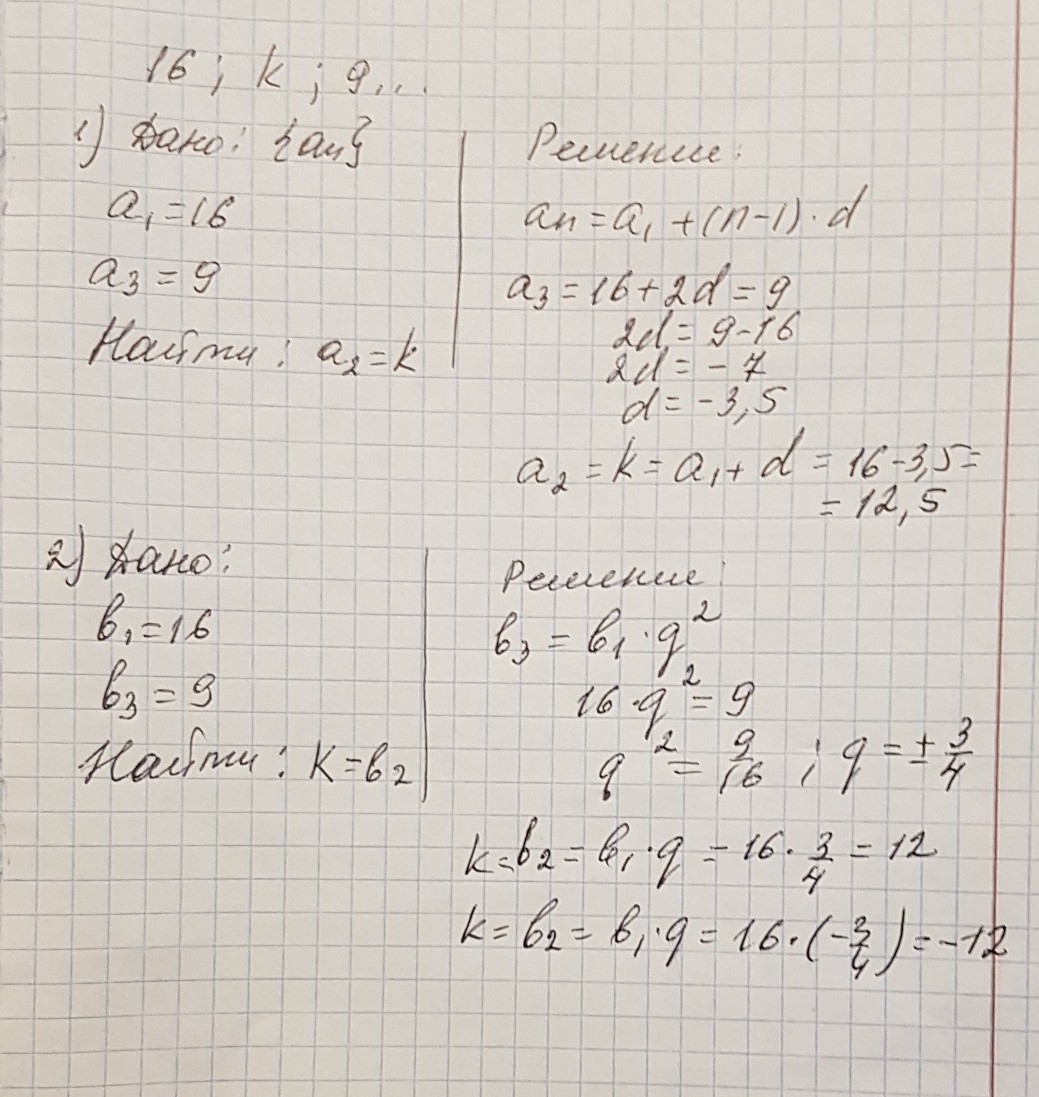 16 ; k ; 9...
1) Дано: {an}
a₁ = 16
a₃ = 9
Найти: a₂ = k
Решение:
an = a₁ + (n-1)·d
a₃ = 16 + 2d = 9
2d = 9-16
2d = -7
d = -3,5
a₂ = k = a₁ + d = 16-3,5 =
= 12,5
2) Дано:
b₁ = 16
b₃ = 9
Найти: k = b₂
Решение:
b₃ = b₁·q²
16·q² = 9
q² = 9/16 ; q = ± 3/4
k = b₂ = b₁·q = 16·3/4 = 12
k = b₂ = b₁·q = 16·(-3/4) = -12